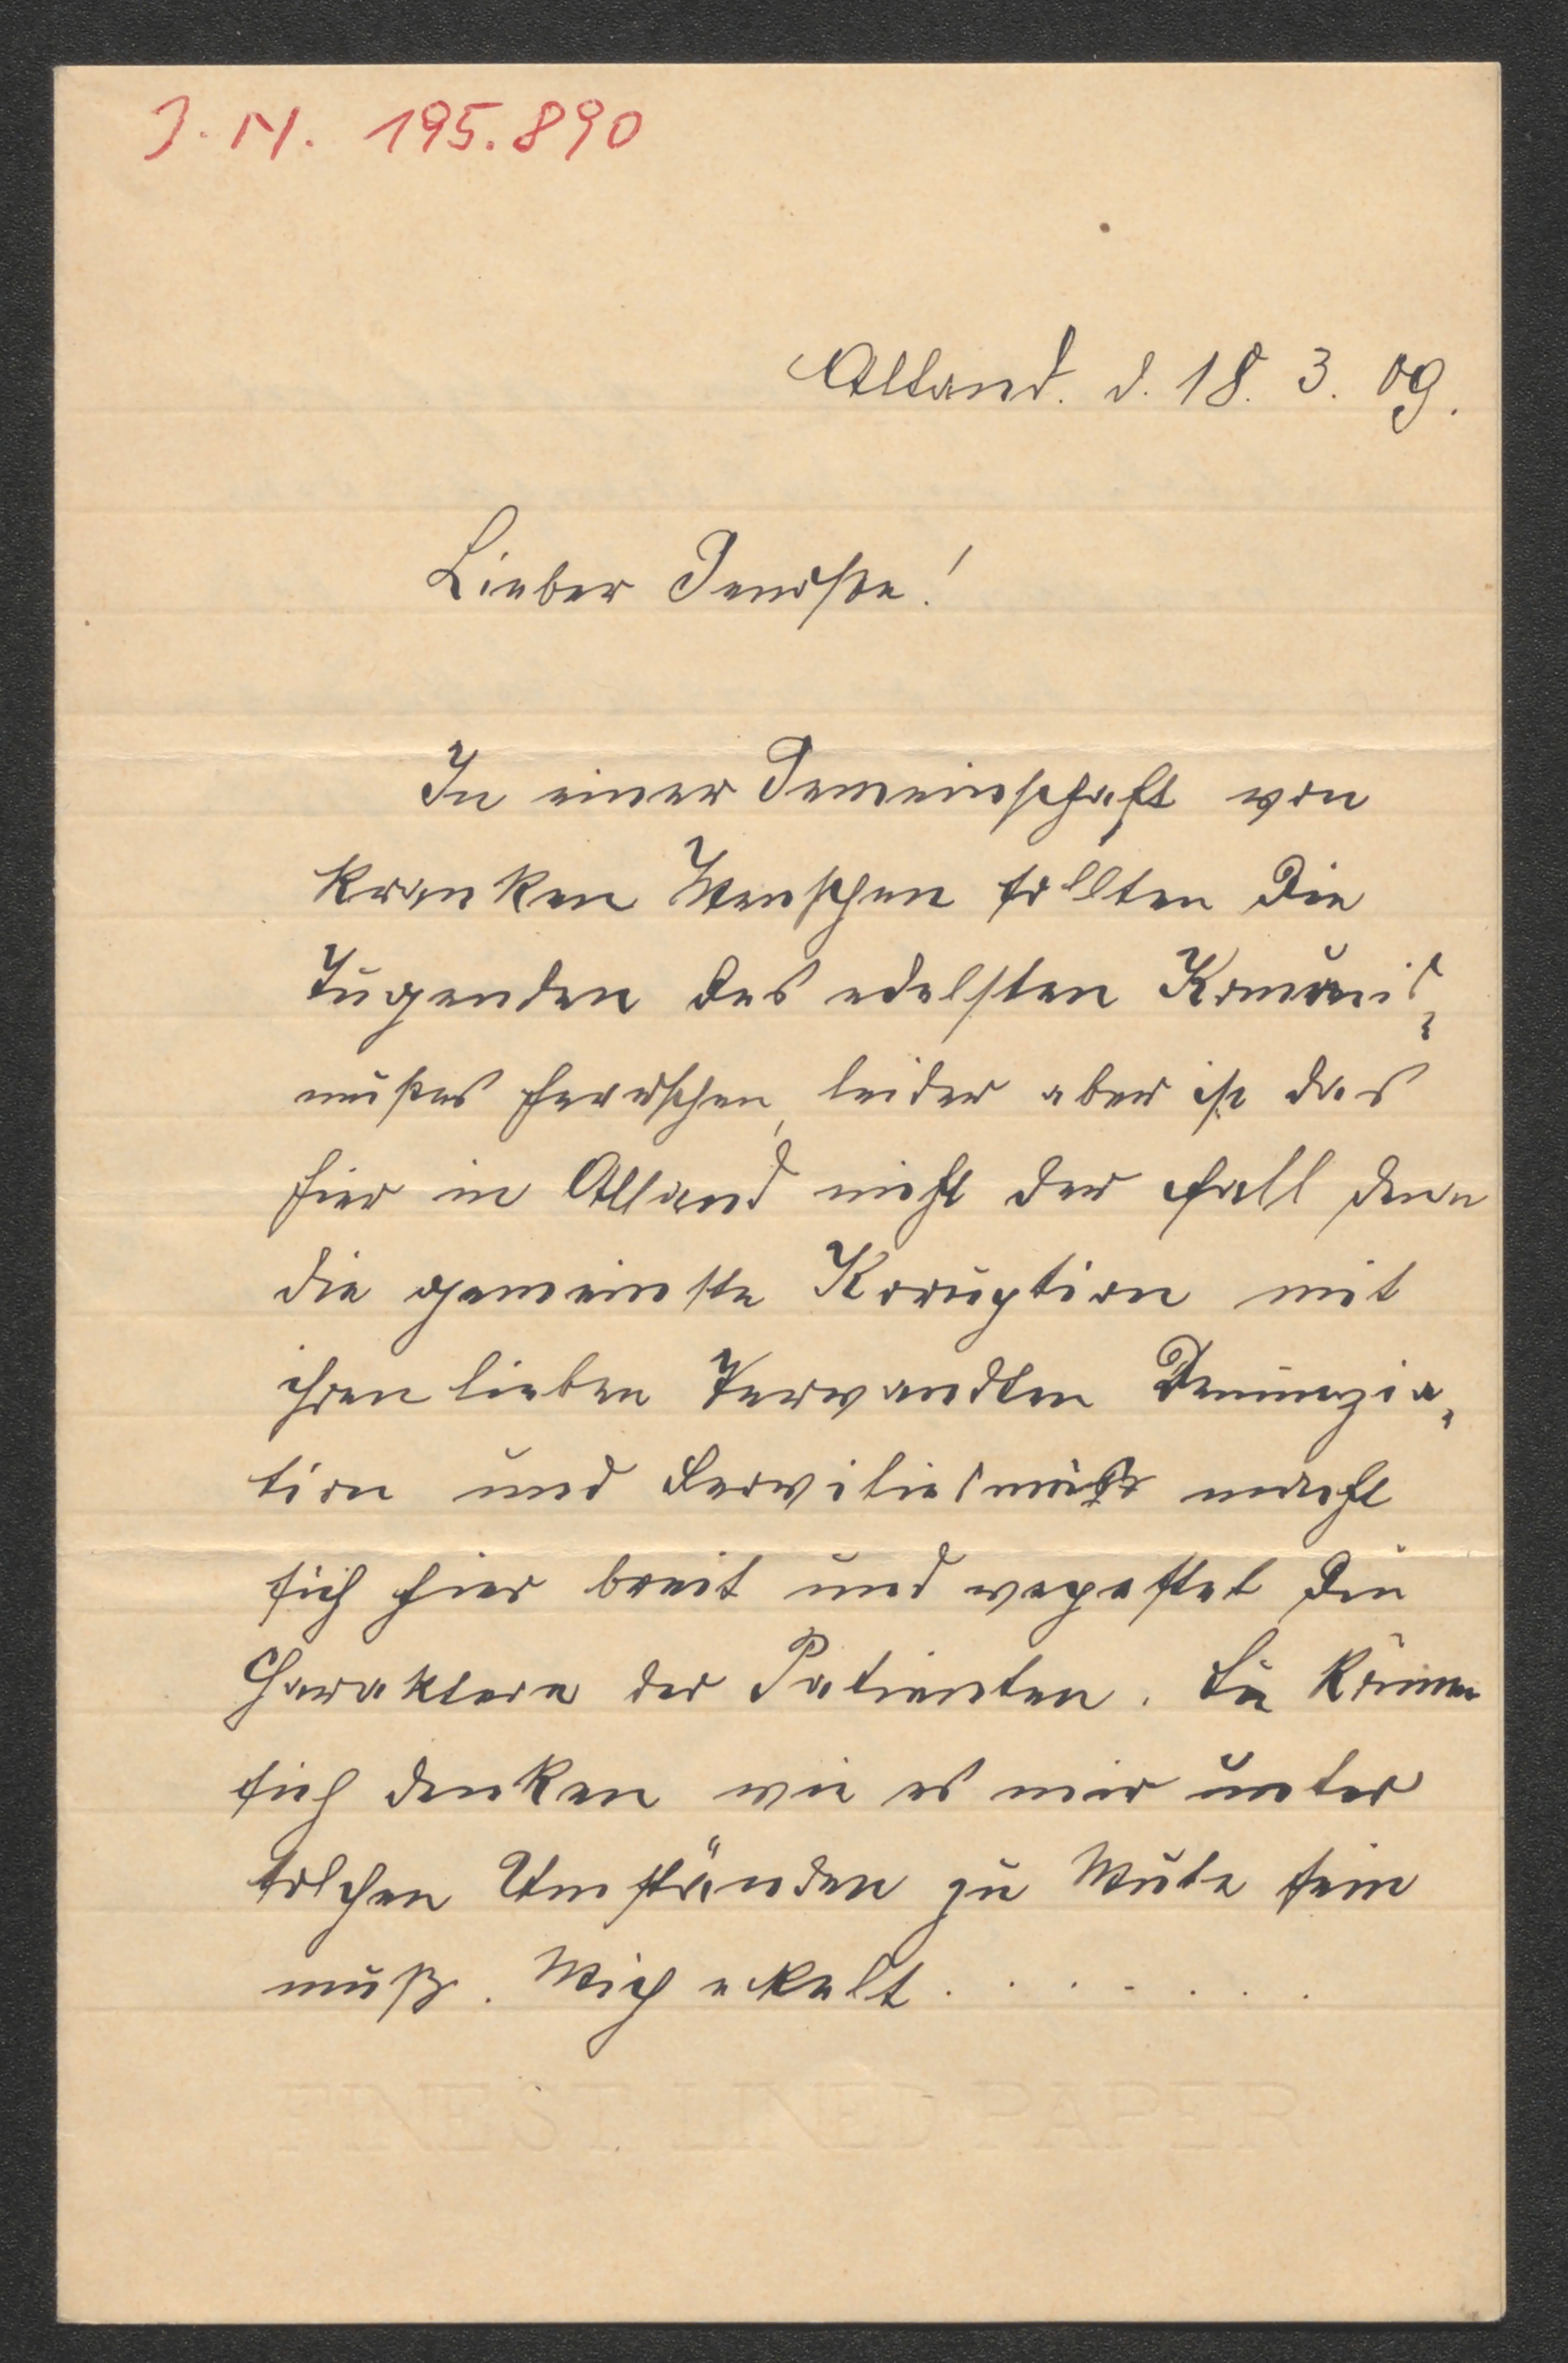 J. N. 195.890
Alland. d. 18. 3. 09.
Lieber Genosse!
In einer Gemeinschaft von
kranken Menschen sollten die
Tugenden des edelsten Komunis„
mußes herrschen, leider aber ist das
hier in Alland nicht der Fall denn
die gemeinste Korruption mit
ihren lieben Verwandten Denunzia„
tion und Servilismuß macht
sich hier breit und verpestet die
Charaktere der Patienten. Sie können
sich denken wie es mir unter
solchen Umständen zu Mute sein
muß. Mich ekelt . . . . . . .
FINEST LINED PAPER